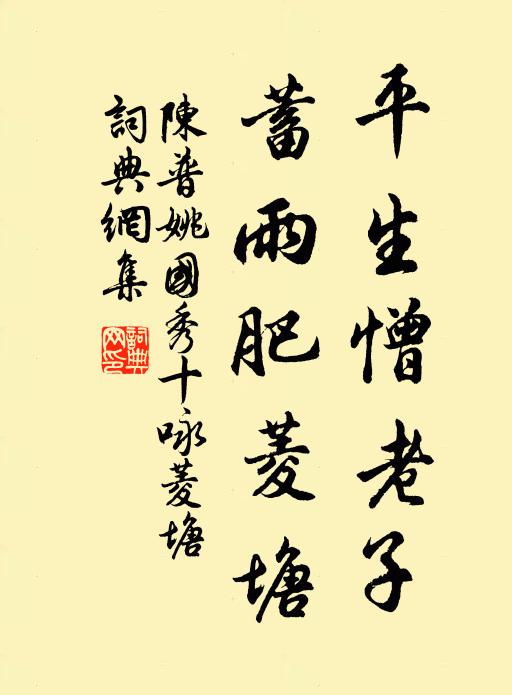 平生憎老子
蓄雨肥菱塘
陳普姚國秀十咏菱塘
詞典網集
詞典網印